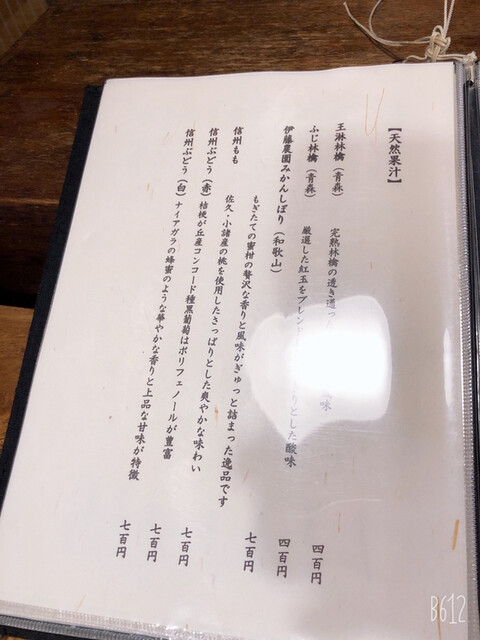 【天然果汁】
王淋林檎（青森） 完熟林檎の透き通っ 味 四百円
ふじ林檎（青森） 厳選した紅玉をブレンド りとした酸味 四百円
伊藤農園みかんしぼり（和歌山）
もぎたての蜜柑の贅沢な香りと風味がぎゅっと詰まった逸品です 七百円
信州もも 佐久・小諸産の桃を使用したさっぱりとした爽やかな味わい 七百円
信州ぶどう（赤） 桔梗が丘産コンコード種黒葡萄はポリフェノールが豊富 七百円
信州ぶどう（白） ナイアガラの蜂蜜のような華やかな香りと上品な甘味が特徴 七百円
B612